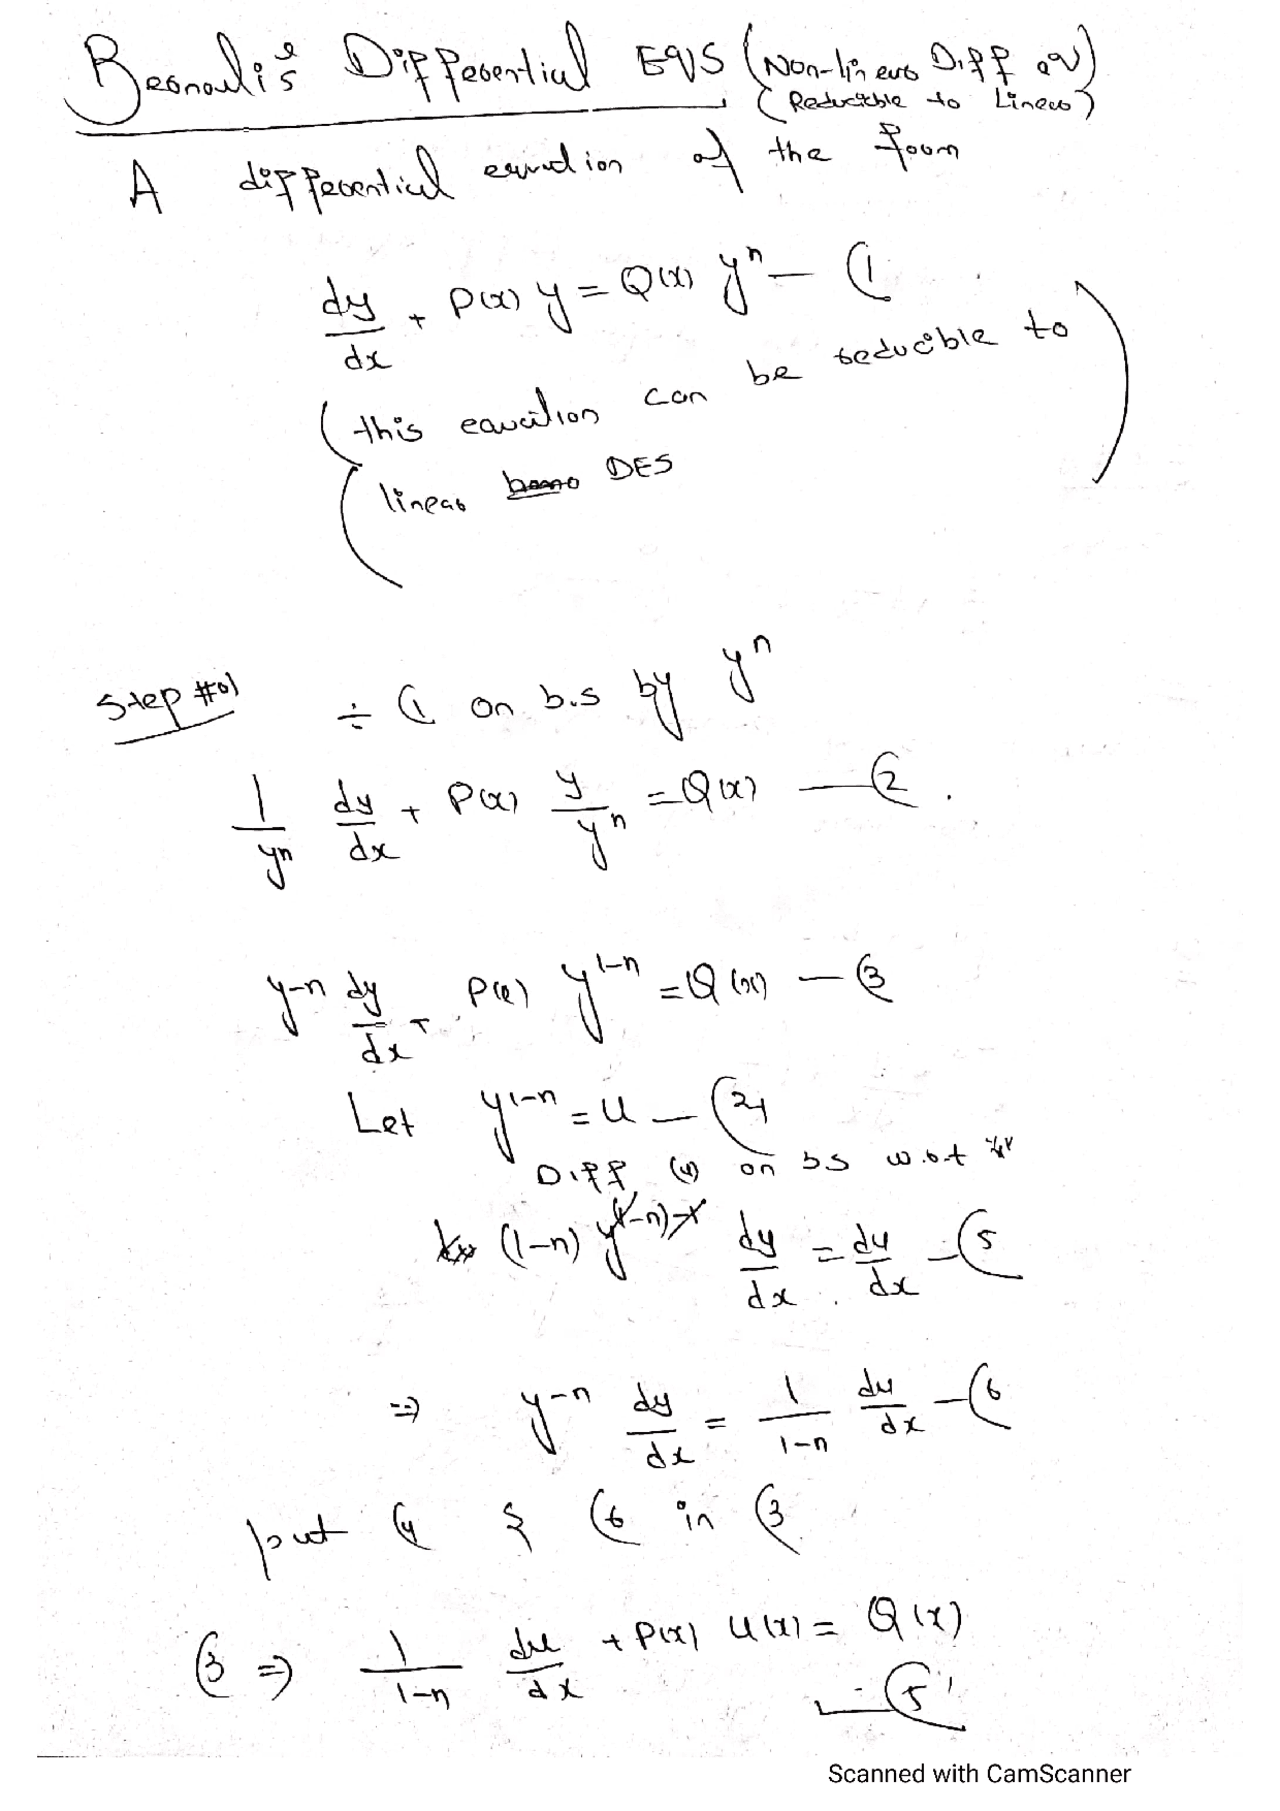 Bernouli's Differential EQS (Non-linear Diff eq)
(Reducible to Linear)
A differential equation of the form
dy/dx + P(x) y = Q(x) y^n — (1
(this equation can be reducible to
linear DES)
Step #01 ÷ (1 on b.s by y^n
1/y^n dy/dx + P(x) y/y^n = Q(x) — (2
y^-n dy/dx + P(x) y^1-n = Q(x) — (3
Let y^1-n = u — (4
Diff (4) on b.s w.r.t
(1-n) y^(1-n)-1 dy/dx = du/dx — (5
=> y^-n dy/dx = 1/1-n du/dx — (6
put (4 & (6 in (3
(3 => 1/1-n du/dx + P(x) u(x) = Q(x)
— (5'
Scanned with CamScanner